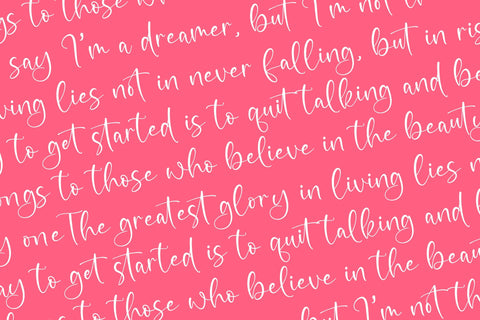 ngs to those who
say I'm a dreamer, but I'm not th
ving lies not in never falling, but in ris
y to get started is to quit talking and be
ongs to those who believe in the beauty
y one The greatest glory in living lies n
ay to get started is to quit talking and b
to those who believe in the beau
but I'm not th